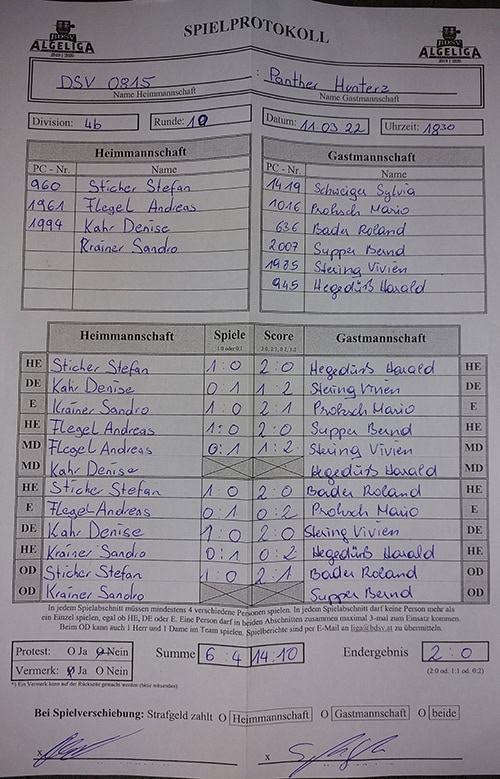 BDSV ALGELIGA 2019 | 2020
SPIELPROTOKOLL
BDSV ALGELIGA 2019 | 2020
DSV 0815 : Panther Hunterz
Name Heimmannschaft Name Gastmannschaft
Division: 4b Runde: 10 Datum: 11.03.22 Uhrzeit: 1830
Heimmannschaft
PC - Nr. Name
960 Sticher Stefan
1961 Flegel Andreas
1994 Kahr Denise
Krainer Sandro
Gastmannschaft
PC - Nr. Name
1419 Schweiger Sylvia
1016 Prohsch Mario
636 Bader Roland
2007 Supper Bernd
1985 Stering Vivien
945 Hegedüß Harald
Heimmannschaft Spiele Score Gastmannschaft
1:0 oder 0:1 2:0, 2:1, 0:2, 1:2
HE Sticher Stefan 1:0 2:0 Hegedüß Harald HE
DE Kahr Denise 0 1 1:2 Stering Vivien DE
E Krainer Sandro 1:0 2:1 Prohsch Mario E
HE Flegel Andreas 1:0 2:0 Supper Bernd HE
MD Flegel Andreas 0:1 1:2 Stering Vivien MD
MD Kahr Denise Hegedüß Harald MD
HE Sticher Stefan 1:0 2:0 Bader Roland HE
E Flegel Andreas 0:1 0:2 Prohsch Mario E
DE Kahr Denise 1:0 2:0 Stering Vivien DE
HE Krainer Sandro 0:1 0:2 Hegedüß Harald HE
OD Sticher Stefan 1:0 2:1 Bader Roland OD
OD Krainer Sandro Supper Bernd OD
In jedem Spielabschnitt müssen mindestens 4 verschiedene Personen spielen. In jedem Spielabschnitt darf keine Person mehr als
ein Einzel spielen, egal ob HE, DE oder E. Eine Person darf in beiden Abschnitten zusammen maximal 3-mal zum Einsatz kommen.
Beim OD kann auch 1 Herr und 1 Dame im Team spielen. Spielberichte sind per E-Mail an liga@bdsv.at zu übermitteln.
Protest: O Ja O Nein Summe 6:4 14:10 Endergebnis 2:0
Vermerk: O Ja O Nein (2:0 od. 1:1 od. 0:2)
*) Ein Vermerk kann auf der Rückseite gemacht werden (bitte mitsenden)
Bei Spielverschiebung: Strafgeld zahlt O Heimmannschaft O Gastmannschaft O beide
x x